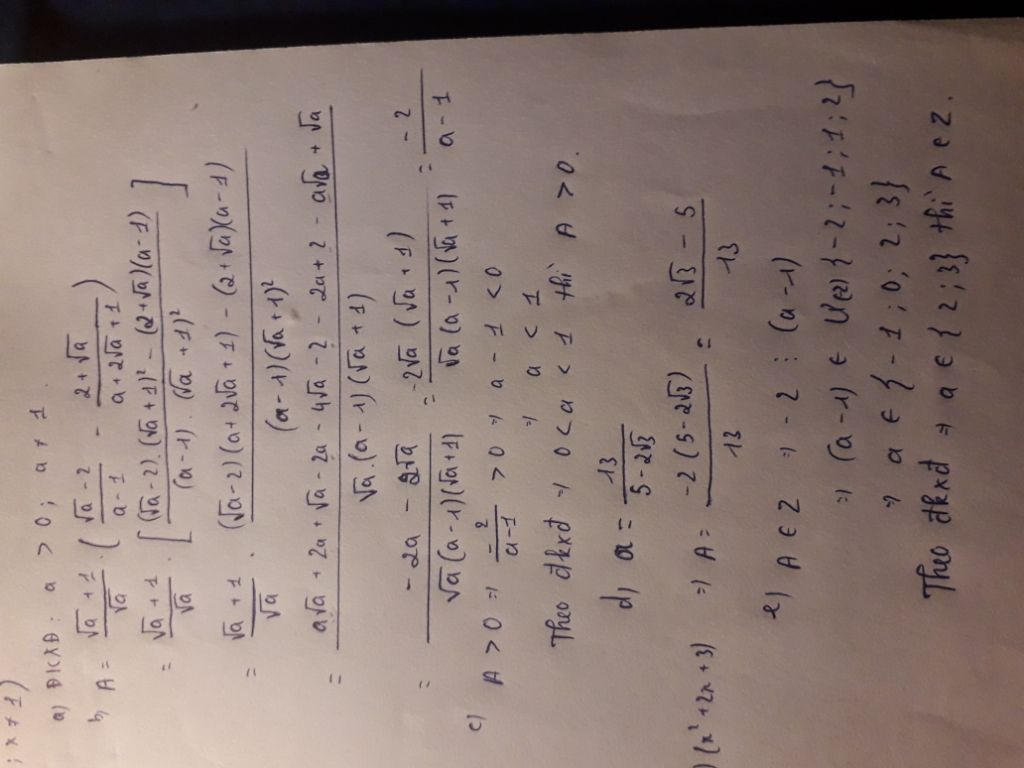 ; x ≠ 1)
a) ĐKXĐ : a > 0 ; a ≠ 1
b) A = (√a + 1)/√a . ( (√a - 2)/(a - 1) - (2 + √a)/(a + 2√a + 1) )
= (√a + 1)/√a . [ ((√a - 2).(√a + 1)² - (2 + √a)(a - 1))/((a - 1).(√a + 1)²) ]
= (√a + 1)/√a . ((√a - 2)(a + 2√a + 1) - (2 + √a)(a - 1))/((a - 1)(√a + 1)²)
= (a√a + 2a + √a - 2a - 4√a - 2 - 2a + 2 - a√a + √a)/(√a.(a - 1)(√a + 1))
= (-2a - 2√a)/(√a(a - 1)(√a + 1)) = (-2√a (√a + 1))/(√a (a - 1)(√a + 1)) = (-2)/(a - 1)
c) A > 0 ⇒ (-2)/(a - 1) > 0 ⇒ a - 1 < 0
⇒ a < 1
Theo đkxđ ⇒ 0 < a < 1 thì A > 0.
d) a = 13/(5 - 2√3)
) (x² + 2x + 3) ⇒ A = (-2 (5 - 2√3))/13 = (2√3 - 5)/13
e) A ∈ Z ⇒ -2 ⋮ (a - 1)
⇒ (a - 1) ∈ Ư(2) {-2 ; -1 ; 1 ; 2}
⇒ a ∈ {-1 ; 0 ; 2 ; 3}
Theo đkxđ ⇒ a ∈ {2 ; 3} thì A ∈ Z.